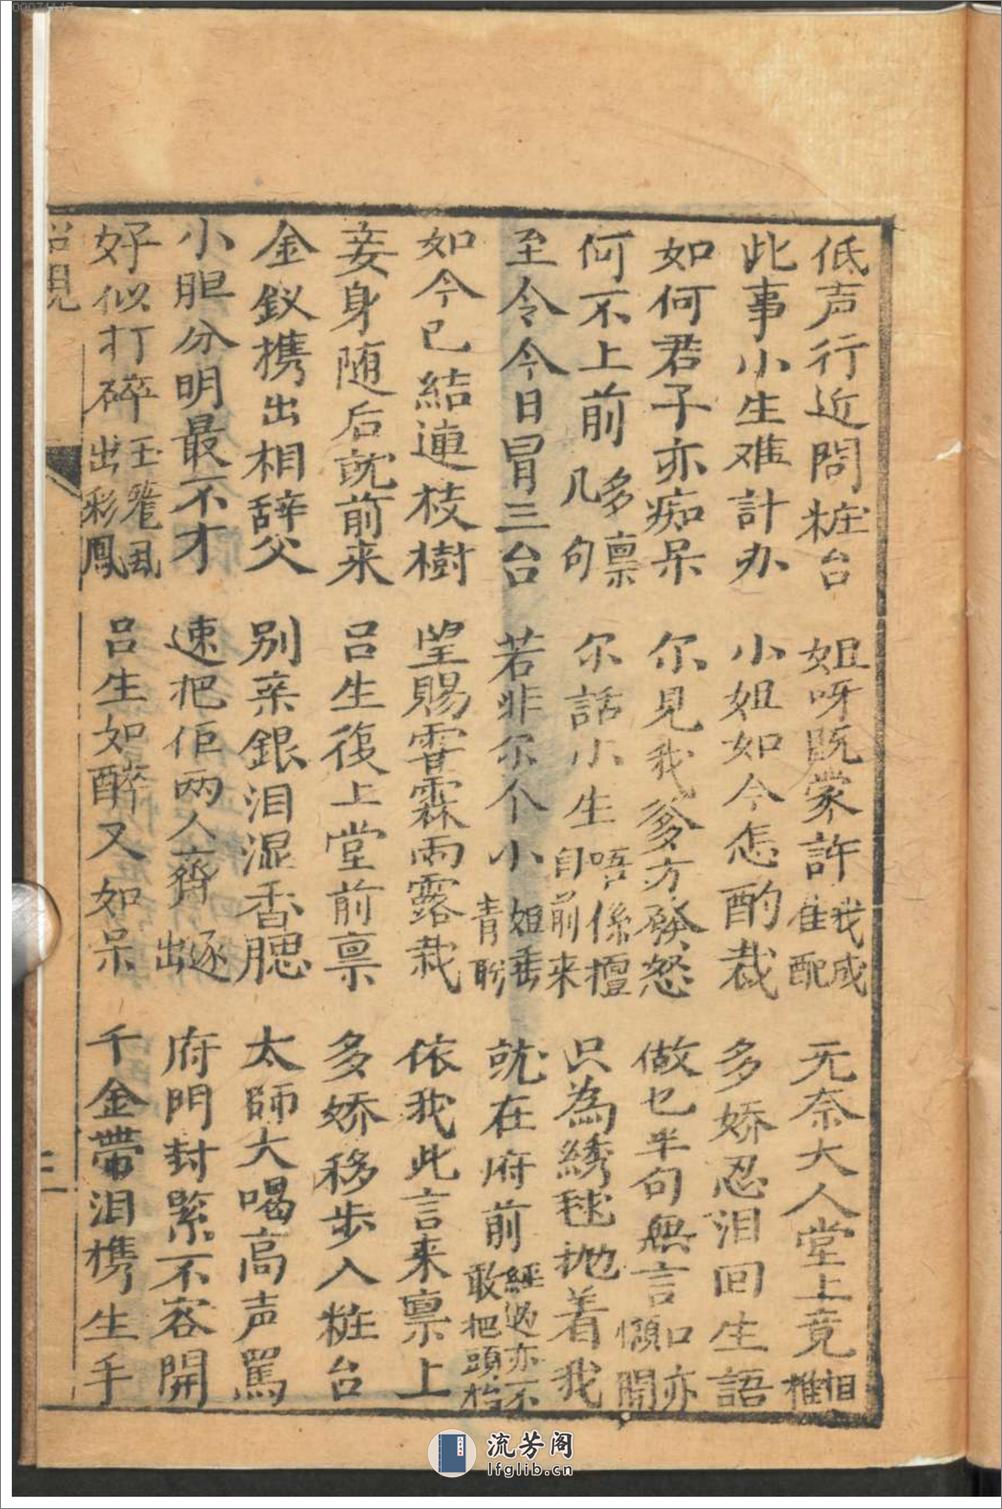 低声行近問粧台 姐呀既蒙許我成佳配 无奈大人堂上竟相推
此事小生难計办 小姐如今怎酌裁 多娇忍泪回生語
如何君子亦痴呆 尔見我爹方發怒 做乜半句無言口亦懶開
何不上前多禀几句 尔話小生唔係擅自前来 只為綉毬抛着我
至令今日冒三台 若非尔个小姐垂青盻 就在府前經過亦不敢把頭抬
如今已結連枝樹 望賜霄霖雨露栽 依我此言来禀上
妾身随后就前来 吕生復上堂前禀 多娇移步入粧台
金釵携出相辞父 别亲銀泪湿香腮 太師大喝高声罵
小胆分明最不才 速把佢两人齊逐出 府門封緊不容開
好似打碎玉篭出彩鳳 吕生如醉又如呆 千金带泪携生手
流芳阁
lfglib.cn